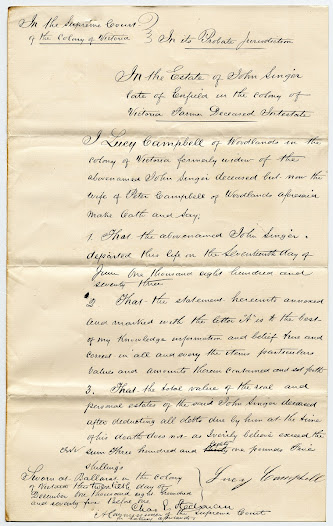 In the Supreme Court
of the Colony of Victoria
In its Probate Jurisdiction
In the Estate of John Singer
late of Enfield in the colony of
Victoria Farmer Deceased Intestate
I Lucy Campbell of Woodlands in the
colony of Victoria formerly widow of the
abovenamed John Singer deceased but now the
wife of Peter Campbell of Woodlands aforesaid
make Oath and say,
1. That the abovenamed John Singer
departed this life on the Seventeenth day of
June One thousand eight hundred and
seventy three
2 That the statement hereunto annexed
and marked with the letter A is to the best
of my knowledge information and belief true and
correct in all and every the items particulars
values and amounts therein contained and set forth
3. That the total value of the real and
personal estates of the said John Singer deceased
after deducting all debts due by him at the time
of his death does not as I verily believe exceed the
sum Three hundred and one pounds Five
shillings
Sworn at Ballarat in the colony
of Victoria this day of
December One thousand eight hundred
and seventy five Before me
Lucy Campbell
Chas
A Commissioner of the Supreme Court
for taking affidavits